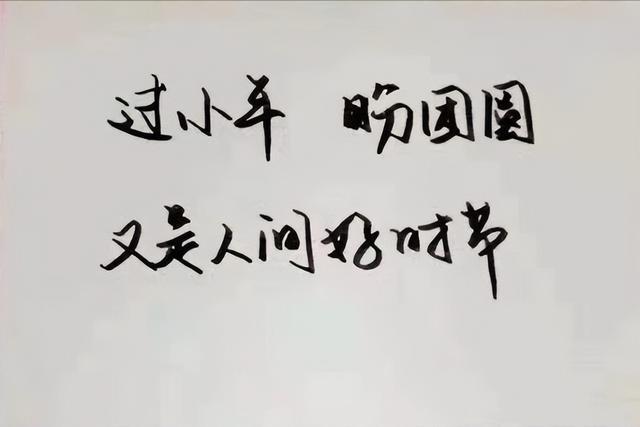 过小年 盼团圆
又是人间好时节